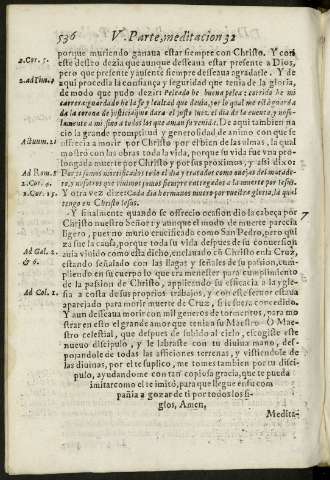 536 V. Parte, meditacion 32
porque muriendo ganaua estar siempre con Christo. Y con
2.Cor. 5. este desseo dezia que aunque desseaua estar presente a Dios,
pero que presente y ausente siempre desseaua agradarle. Y de
2.ad Tim.4 aqui procedia la confiança y seguridad que tenia de la gloria,
de modo que pudo dezir: Peleado he buena pelea: corrido he mi
carrera: guardado he la fe y lealtad que deuia, por lo qual me està guarda
da la corona de justicia que dara el justo juez el dia de la cuenta y no so-
lamente a mi sino a todos los que aman su venida. De aqui tambien na
Actuum. 21 cio la grande promptitud y generosidad de animo con que se
offrecia a morir por Christo por el bien de las almas, la qual
mostrò con las obras toda la vida, porque su vida fue vna pro
longada muerte por Christo y por sus proximos, y assi dixo:
Ad Rom. 8 Por ti somos mortificados todo el dia y tratados como ouejas del matade-
2.Cor. 4. ro, y nosotros que viuimos somos siempre entregados a la muerte por Iesus.
1.Cor. 15. Y otra vez dize: Cada dia hermanos muero por vuestra gloria, la qual
tengo en Christo Iesus.
Y finalmente quando se offrecio ocasion dio la cabeça por 7
Christo nuestro Señor y aunque el modo de muerte parecio
ligero, pues no murio crucificado como San Pedro, pero qui
za fue la causa, porque toda su vida despues de su conuersion
Ad Gal. 2. auia viuido como esta dicho, enclauado con Christo en la Cruz,
& 6. estando señalado con las llagas y señales de su passion, cum-
pliendo en su cuerpo lo que era menester para cumplimiento
Ad Col. 1. de la passion de Christo, applicando su efficacia a la ygle-
sia a costa de sus proprios trabajos, y con este feruor estaua
aparejado para morir muerte de Cruz, si le fuera concedido.
Y aun desseaua morir con mil generos de tormentos, para mo
strar en esto el grande amor que tenia a su Maestro. O Mae
stro celestial, que despues de subido al cielo, escogiste este
nueuo discipulo, y le labraste con tu diuina mano, des-
pojandole de todas las afficiones terrenas, y vistiendole de
las diuinas, por el te suplico, me tomes tambien por tu disci-
pulo, ayudandome con tan copiosa gracia, que te pueda
imitar como el te imitò, para que llegue en su com
pañia a gozar de ti por todos los si-
glos, Amen.
Medita-